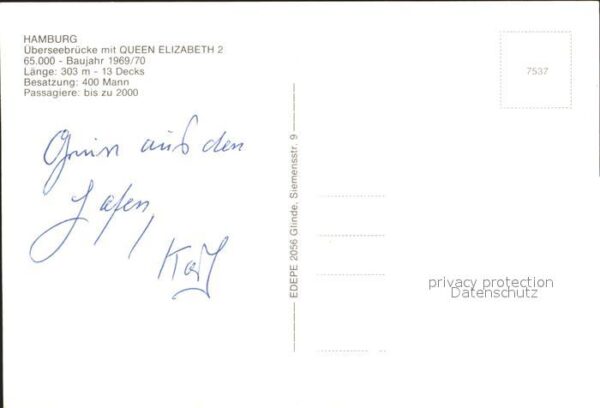 HAMBURG
Überseebrücke mit QUEEN ELIZABETH 2
65.000 - Baujahr 1969/70
Länge: 303 m - 13 Decks
Besatzung: 400 Mann
Passagiere: bis zu 2000
7537
aus den
Hafen,
EDEPE 2056 Glinde, Siemensstr. 9
privacy protection
Datenschutz